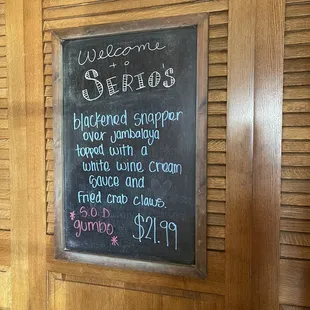 Welcome
to
SERIO'S
blackened snapper
over jambalaya
topped with a
white wine cream
sauce and
fried crab claws.
*S.O.D
gumbo* $21.99